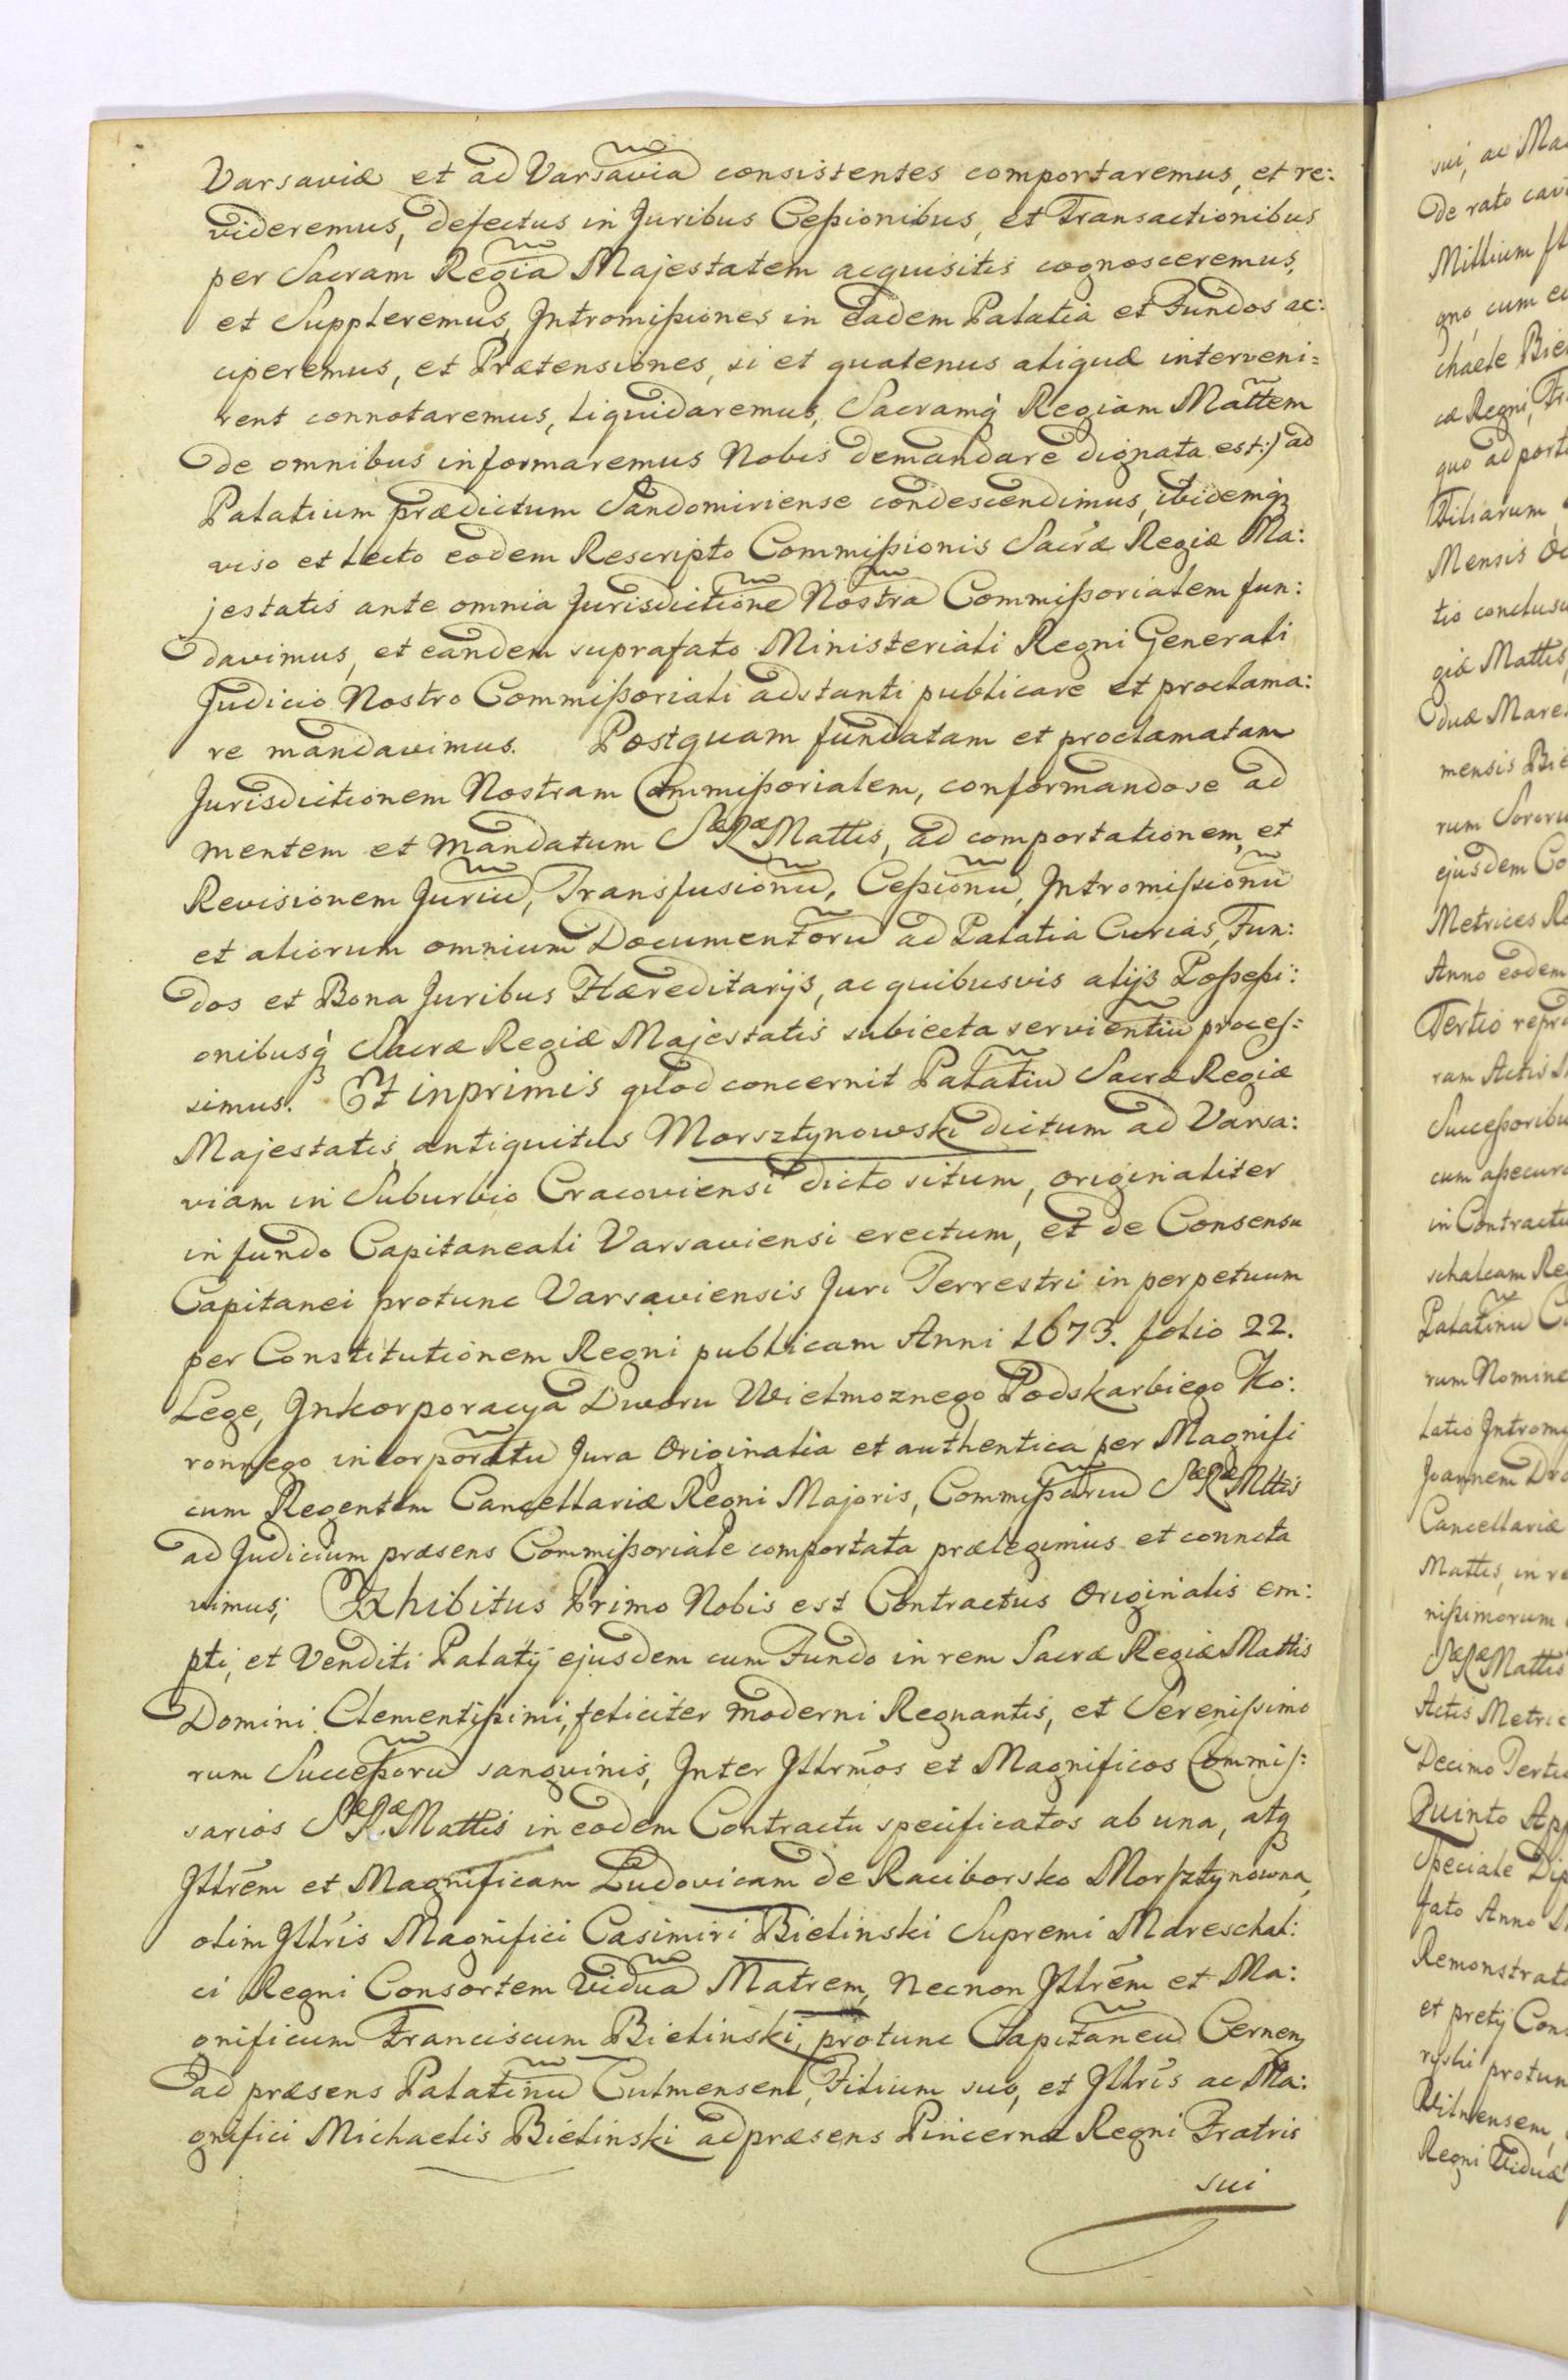 Varsaviæ et ad Varsavia͠ consistentes comportaremus, et re:
videremus, defectus in Juribus Ceßionibus, et Transactionibus
per Sacram Regia͠ Majestatem acquisitis cognosceremus,
et Suppleremus, Intromißiones in eadem Palatia et Fundos ac:
ciperemus, et Prætensiones, si et quatenus aliquæ interveni=
rent connotaremus, liquidaremus, Sacramq́ Regiam Mattem
de omnibus informaremus Nobis demandare dignata est:) ad
Palatium prædictum Sandomiriense condescendimus, ibidemq₃
viso et lecto eodem Rescripto Commißionis Sacræ Regiæ Ma:
jestatis ante omnia Jurisdictione͠ Nostra͠ Commißorialem fun:
davimus, et eandem suprafato Ministeriali Regni Generali
Judicio Nostro Commißoriali adstanti publicare et proclama:
re mandavimus. Postquam fundatam et proclamatam
Jurisdictionem Nostram Commißorialem, conformando se ad
mentem et mandatum SæRæ Mattis, ad comportationem, et
Revisionem Juriu͠, Transfusionu͠, Ceßionu͠, Intromißionu͠
et aliorum omnium Documentoru͠ ad Palatia Curias, Fun:
dos et Bona Juribus Hæreditarijs, ac quibusvis alijs Poßeßi:
onibusq́ Sacræ Regiæ Majestatis subiecta servientiu͠ proces:
simus. Et inprimis quod concernit Palatiu͠ Sacræ Regiæ
Majestatis, antiquitus Morsztynowski dictum ad Varsa:
viam in Suburbio Cracoviensi dicto situm, originaliter
in fundo Capitaneali Varsaviensi erectum, et de Consensu
Capitanei protunc Varsaviensis Juri Terrestri in perpetuum
per Constitutionem Regni publicam Anni 1673. folio 22.
Lege, Inkorporacya Dworu Wielmoznego Podskarbiego Ko:
ronnego incorporatu͠ Jura Originalia et authentica per Magnifi
cum Regentem Cancellariæ Regni Majoris, Commißariu͠ SæRæ Mttis
ad Judicium præsens Commißoriale comportata prælegimus et connota
vimus; Exhibitus Primo Nobis est Contractus Originalis em:
pti, et Venditi Palatij ejusdem cum Fundo in rem Sacræ Regiæ Mattis
Domini Clementißimi, feliciter moderni Regnantis, et Serenißimo
rum Succeßoru͠ sanguinis, Inter Jllrmos et Magnificos Commis:
sarios SæRæ Mattis in eodem Contractu specificatos ab una, atq₃
Jllrem et Magnificam Ludovicam de Raciborsko Morsztynowna,
olim Jllris Magnifici Casimiri Bielinski Supremi Mareschal:
ci Regni Consortem Vidua͠ Matrem, Necnon Jllrem et Ma:
gnificum Franciscum Bielinski, protunc Capitaneu͠ Cernen
ad præsens Palatinu͠ Culmensem, Filium suo, et Jllris ac Ma:
gnifici Michaelis Bielinski ad præsens Pincernæ Regni Fratris
sui
sui, ac Ma
de rato cav
Millium fl
gno, cum e
chaele Bie
cæ Regni, Fr
quo ad port
Filiarum
Mensis Oc
tio conclus
giæ Mattis,
duæ Mare
mensis Bie
rum Soror
ejusdem Co
Metrices Re
Anno eodem
Tertio repr
ram Actis
Succeßoribu
cum aßecur
in Contractu
schalcam Re
Palatinu͠ C
rum Nomine
latio Introm
Joannem Dr
Cancellariæ
Mattis, in re
nißimorum
SæRæ Mattis
Actis Metric
Decimo Terti
Quinto Ap
Speciale Dip
fato Anno
Remonstrat
et pretij Con
ryski protun
Vilnensem,
Regni Viduæ